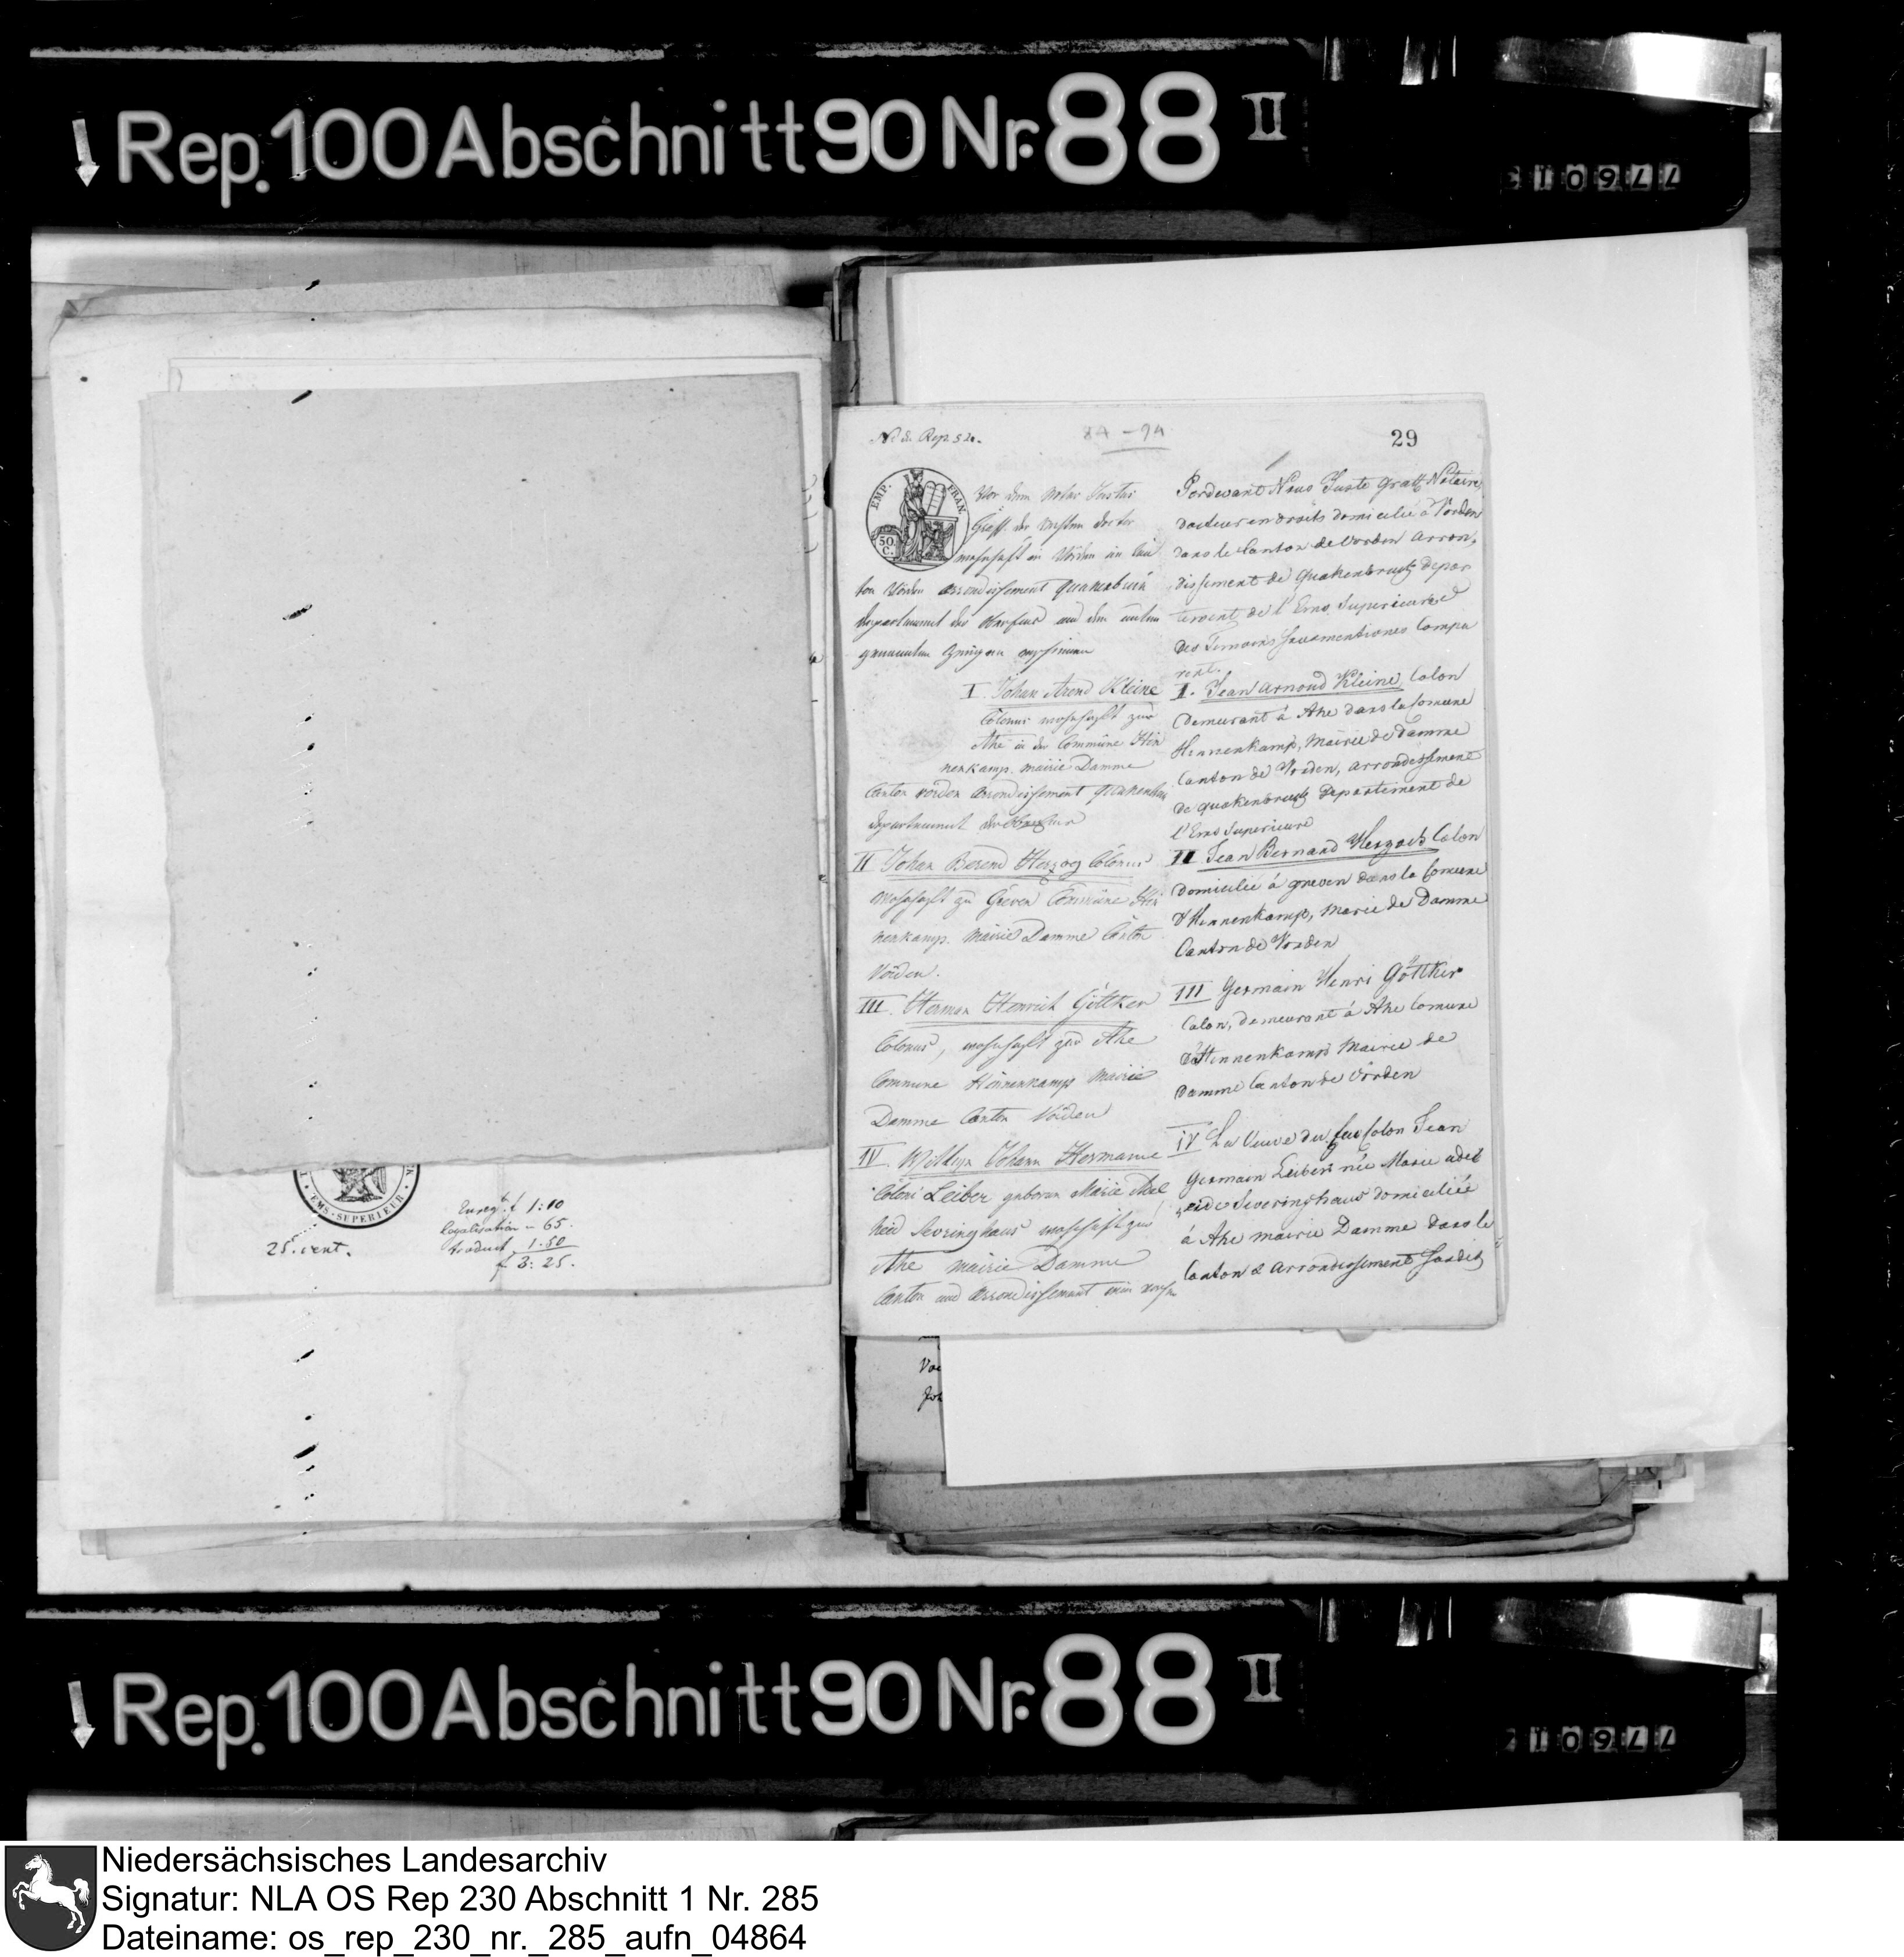 Rep. 100 Abschnitt 90 Nr. 88 II
77601
EMS-SUPERIEUR
25. cent.
Enreg. f 1:10
legalisation - 65.
traduct 1.50
f 3:25.
No d. Rep. 52.
84 - 94
29
EMP. FRAN.
50 C.
Vor dem Notar Justus
Gräff der Rechten doctor
wohnhaft in Vörden im Can
ton Vörden Arrondissement Quakenbrück
Departement der und den unten
genannten Zeugen erschienen
I. Johan Arend Kleine
Colonus wohnhaft zur
Ahe in der Commüne Hin
nenkamp. mairie Damme
Canton Vörden Arrondissement
Departement
II Johan Berend Herzog Colonus
wohnhaft zu Greven Commüne Hin
nenkamp. Mairie Damme Canton
Vörden.
III. Herman Henrich Göttker
Colonus, wohnhaft zur Ahe
Commune Hinnenkamp Mairie
Damme Canton Vörden
IV. Wittwe Johann Hermann
Coloni Leiber geboren Marie Adel
heid Severinghaus wohnhaft zur
Ahe mairie Damme
Canton und Arrondissement wie
Pardevant Nous Juste Graff Notaire
docteur en droits domicilié à Vorden
dans le Canton de Vorden Arron,
dissement de Quakenbrugk depar
tement de l'Ems Superieure
des Temoins Susmentiones Compa
rent.
I. Jean Arnoud Kleine, Colon
demeurant à Ahe dans la Comune
Hinnenkamp, Mairie de Damme
Canton de Vorden, arrondissement
de quakenbrugk Departement de
l'Ems Superieure
II Jean Bernard Herzoch Colon
domicilié à greven dans la Comune
d'Hinnenkamp, Marie de Damme
Canton de Vorden
III Germain Henri Göttker
Colon, demeurant à Ahe Comune
d'Hinnenkamp Mairie de
Damme Canton de Vörden
IV La Veuve du feu Colon Jean
Germain Leiber née Marie adel
heide Severinghaus domiciliée
à Ahe mairie Damme dans le
Canton & Arrondissement Susdit
Rep. 100 Abschnitt 90 Nr. 88 II
77601
Niedersächsisches Landesarchiv
Signatur: NLA OS Rep 230 Abschnitt 1 Nr. 285
Dateiname: os_rep_230_nr._285_aufn_04864